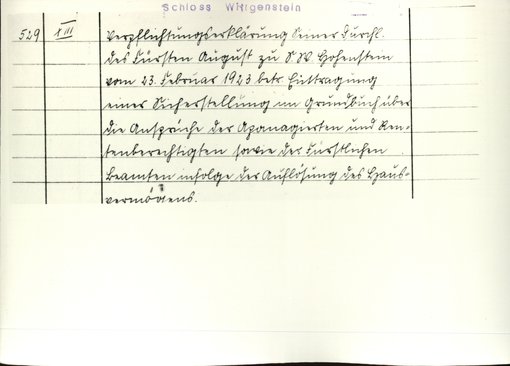 Schloss Wittgenstein
529 XIII Verpflichtungserklärung Seiner Durchl.
des Fürsten August zu S.W. Hohenstein
vom 23. Februar 1923 betr. Eintragung
einer Sicherstellung im Grundbuch über
die Ansprüche der Apanagierten und Ren-
tenberechtigten sowie der Fürstlichen
Beamten infolge der Auflösung des Haus-
vermögens.